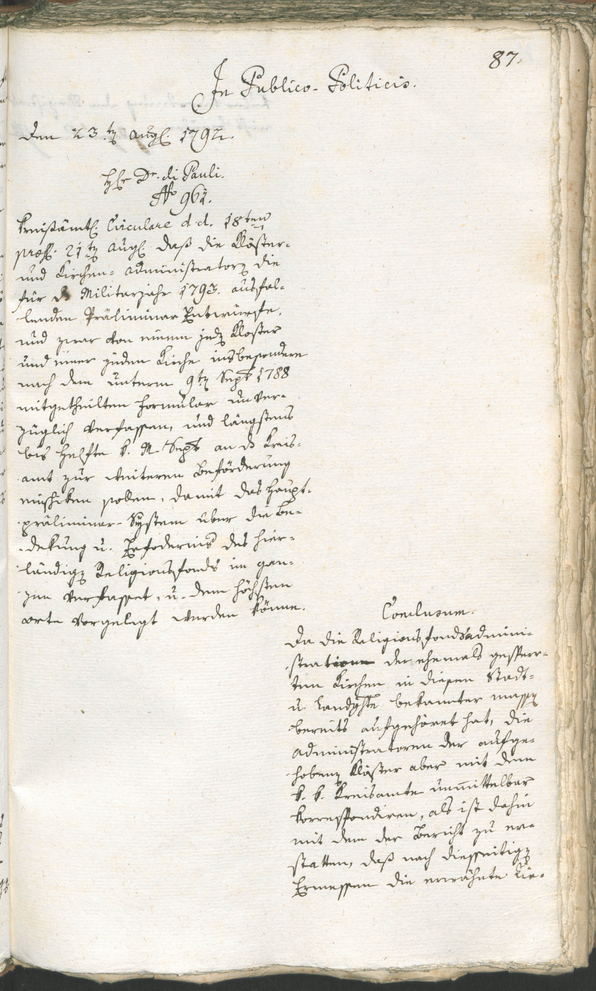 87.
In Publico-Politicis.
Den 23.t Augt. 1792.
Hr. Dr. di Pauli.
No 961.
Kreisämtl. Circulare d.d. 18ten
præs. 21t Augt. daß die Klöster-
und Kirchen-Administratorn die
für d Militarjahr 1793. ausfal-
lenden Präliminar Entwürfe,
und zwar von einem jedn Kloster
und einer jeden Kirche insbesondere
nach dem unterm 9tn Sept 1788
mitgetheilten Formular unver-
züglich verfassen, und längstens
bis Helfte k. M. Sept. an d Kreis-
amt zur weiteren Beförderung
einschiken sollen, damit das Haupt-
präliminar-System über die Be-
dekung u. Erfoderniß des hier-
ländign Religionsfonds im gan-
zen verfasset, u. dem höchsten
Orte vorgelegt werden könne.
Conclusum.
Da die Religionsfondsadmini-
stration der ehemals gesperr-
ten Kirchen in diesem Stadt-
u. Landgste bekannter massn
bereits aufgehöret hat, die
Administratoren der aufge-
hobenn Klöster aber mit dem
k. k. Kreisamte unmittelbar
korrespondiren, als ist dahin
mit dem der Bericht zu er-
statten, daß nach diesseitign
Ermessen die erwähnte Lie-